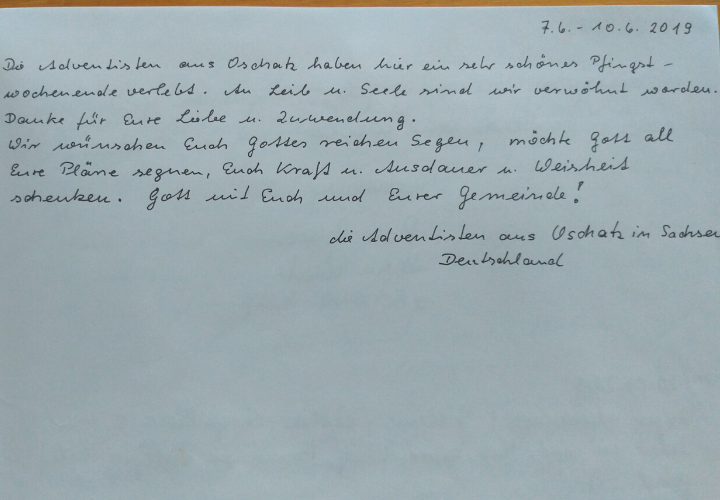 7.6. - 10.6. 2019
Die Adventisten aus Oschatz haben hier ein sehr schönes Pfingst-
wochenende verlebt. An Leib u. Seele sind wir verwöhnt worden.
Danke für Eure Liebe u. Zuwendung.
Wir wünschen Euch Gottes reichen Segen, möchte Gott all
Eure Pläne segnen, Euch Kraft u. Ausdauer u. Weisheit
schenken. Gott mit Euch und Eurer Gemeinde!
die Adventisten aus Oschatz in Sachsen
Deutschland